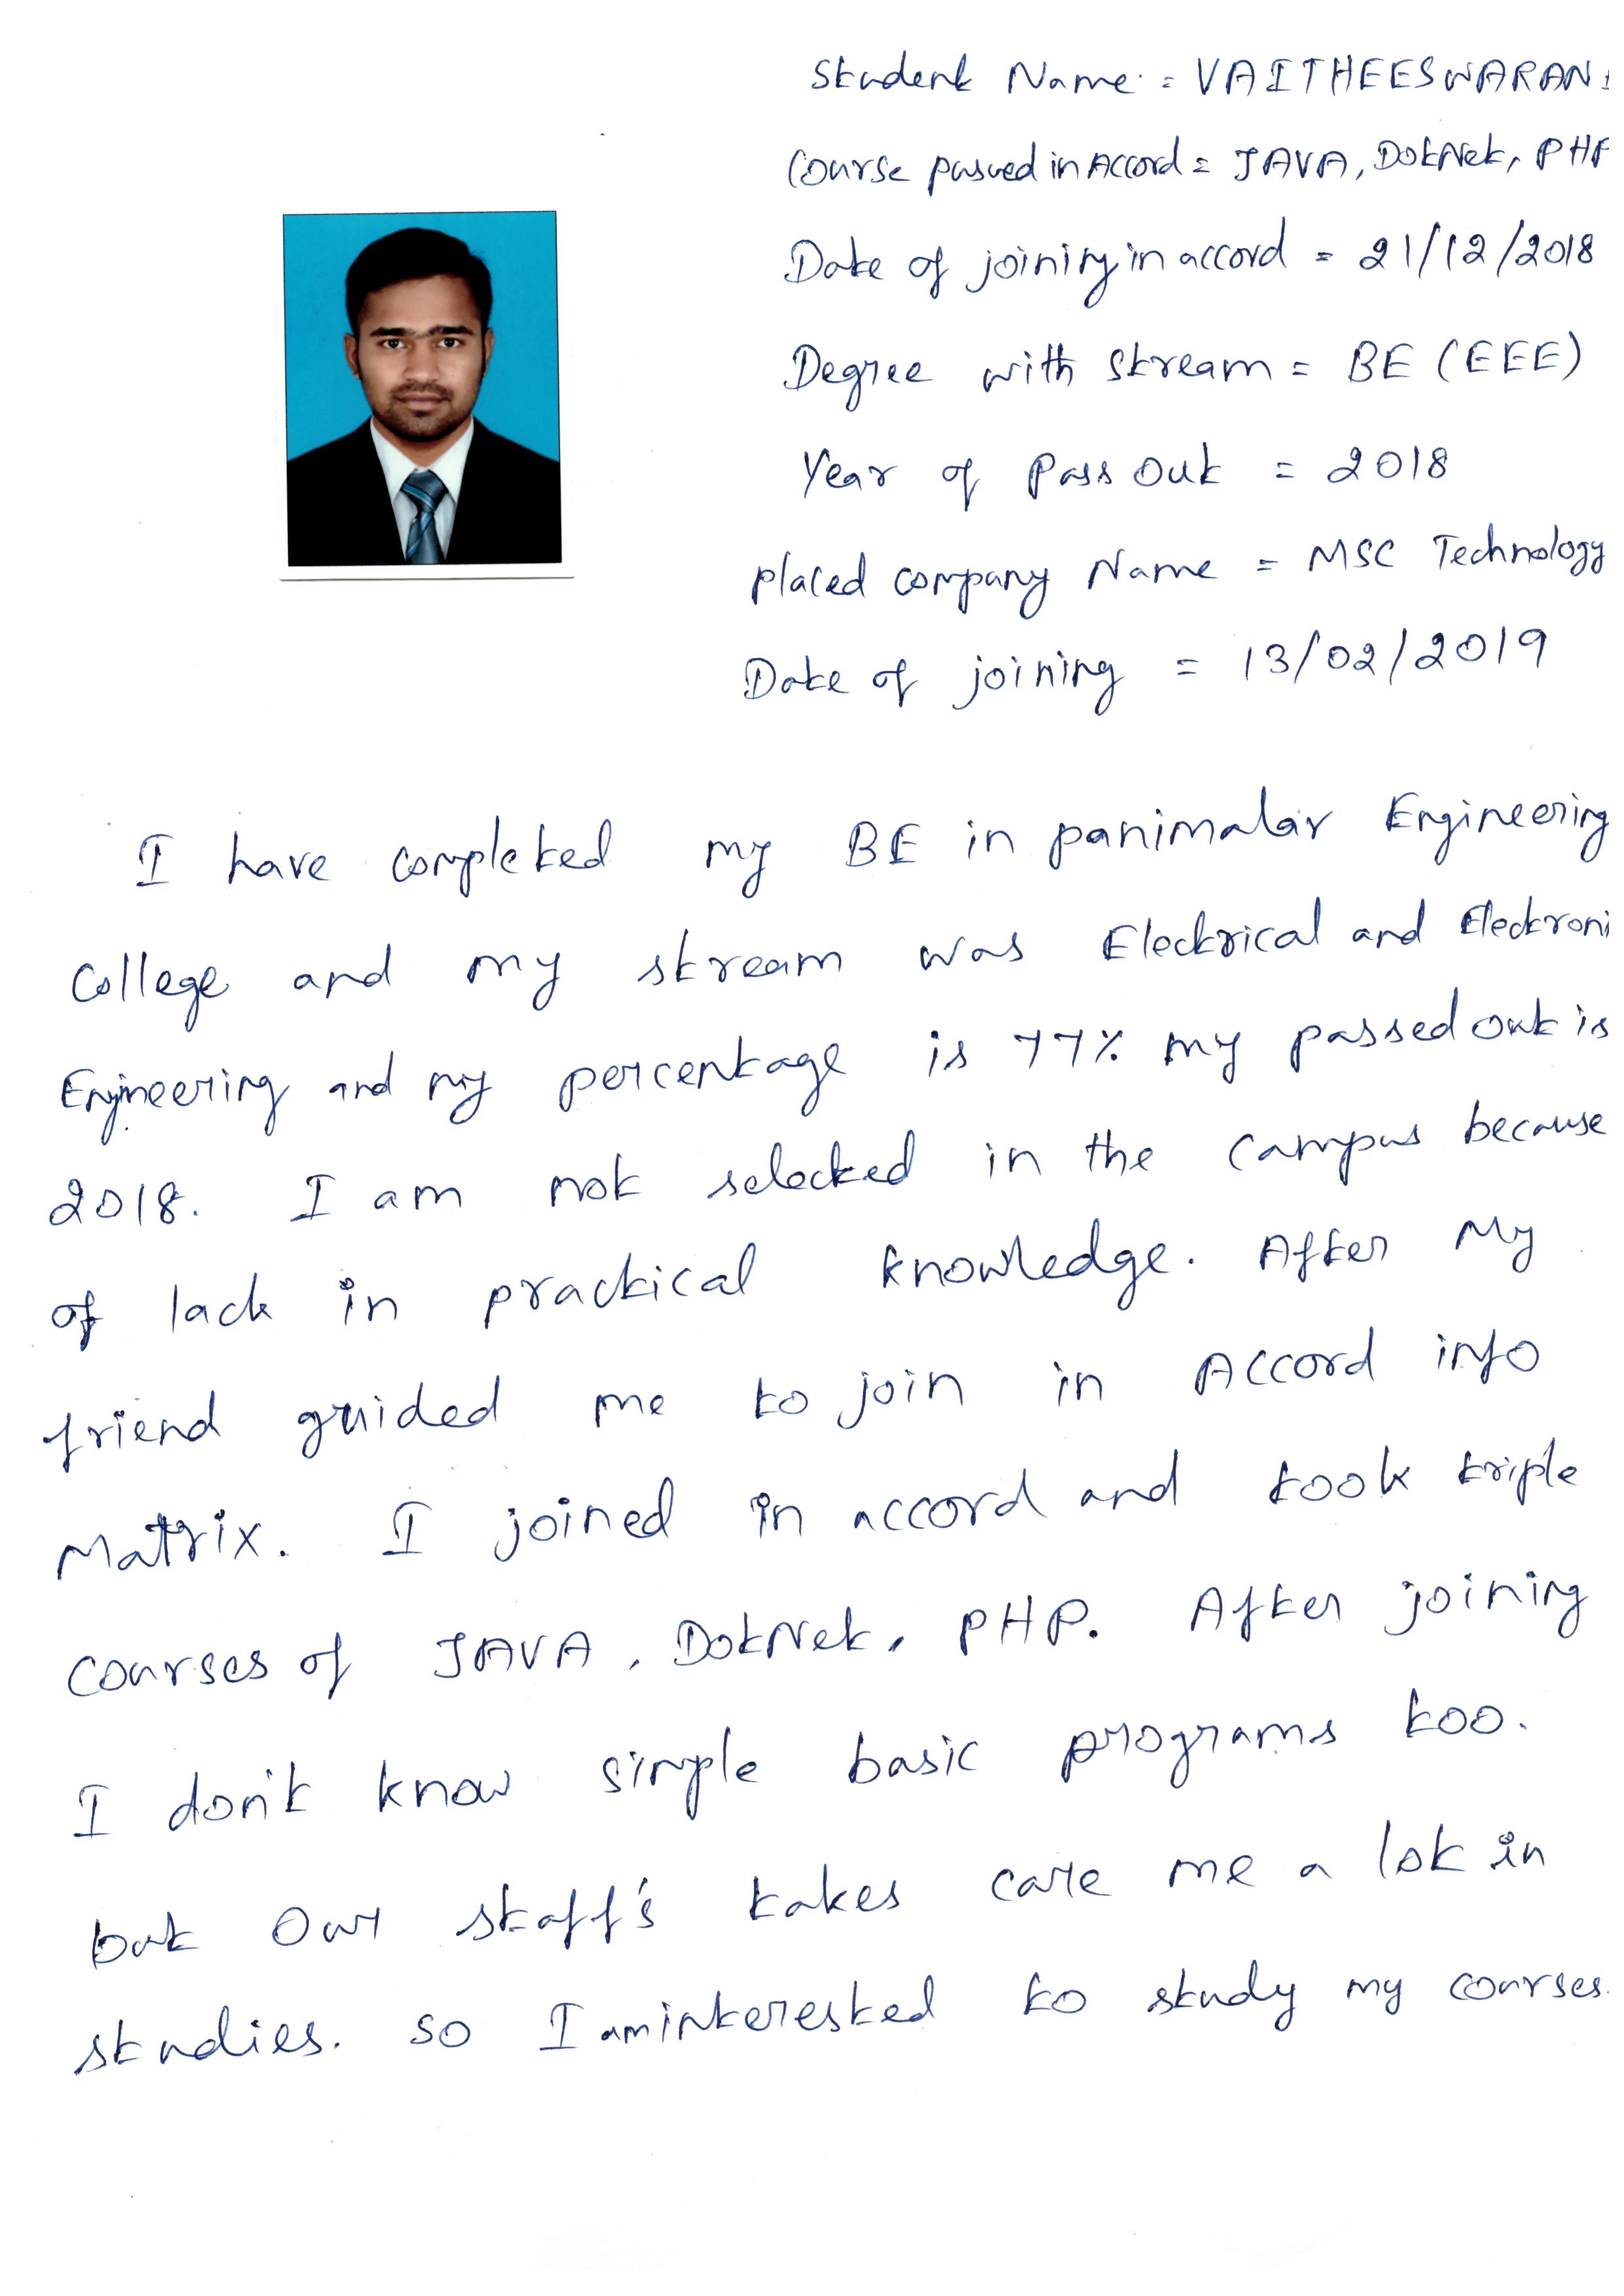 Student Name = VAITHEESWARAN
Course pasued in Accord = JAVA, DotNet, PHP
Date of joining in accord = 21/12/2018
Degree with stream = BE (EEE)
Year of Pass Out = 2018
placed company Name = MSC Technology
Date of joining = 13/02/2019
I have completed my BE in panimalar Engineering
College and my stream was Electrical and Electroni
Engineering and my percentage is 77% my passed out is
2018. I am not selected in the campus because
of lack in practical knowledge. After My
friend guided me to join in Accord info
Matrix. I joined in accord and took triple
courses of JAVA, DotNet, PHP. After joining
I don't know simple basic programs too.
but our staff's takes care me a lot in
studies. so I am interested to study my courses.